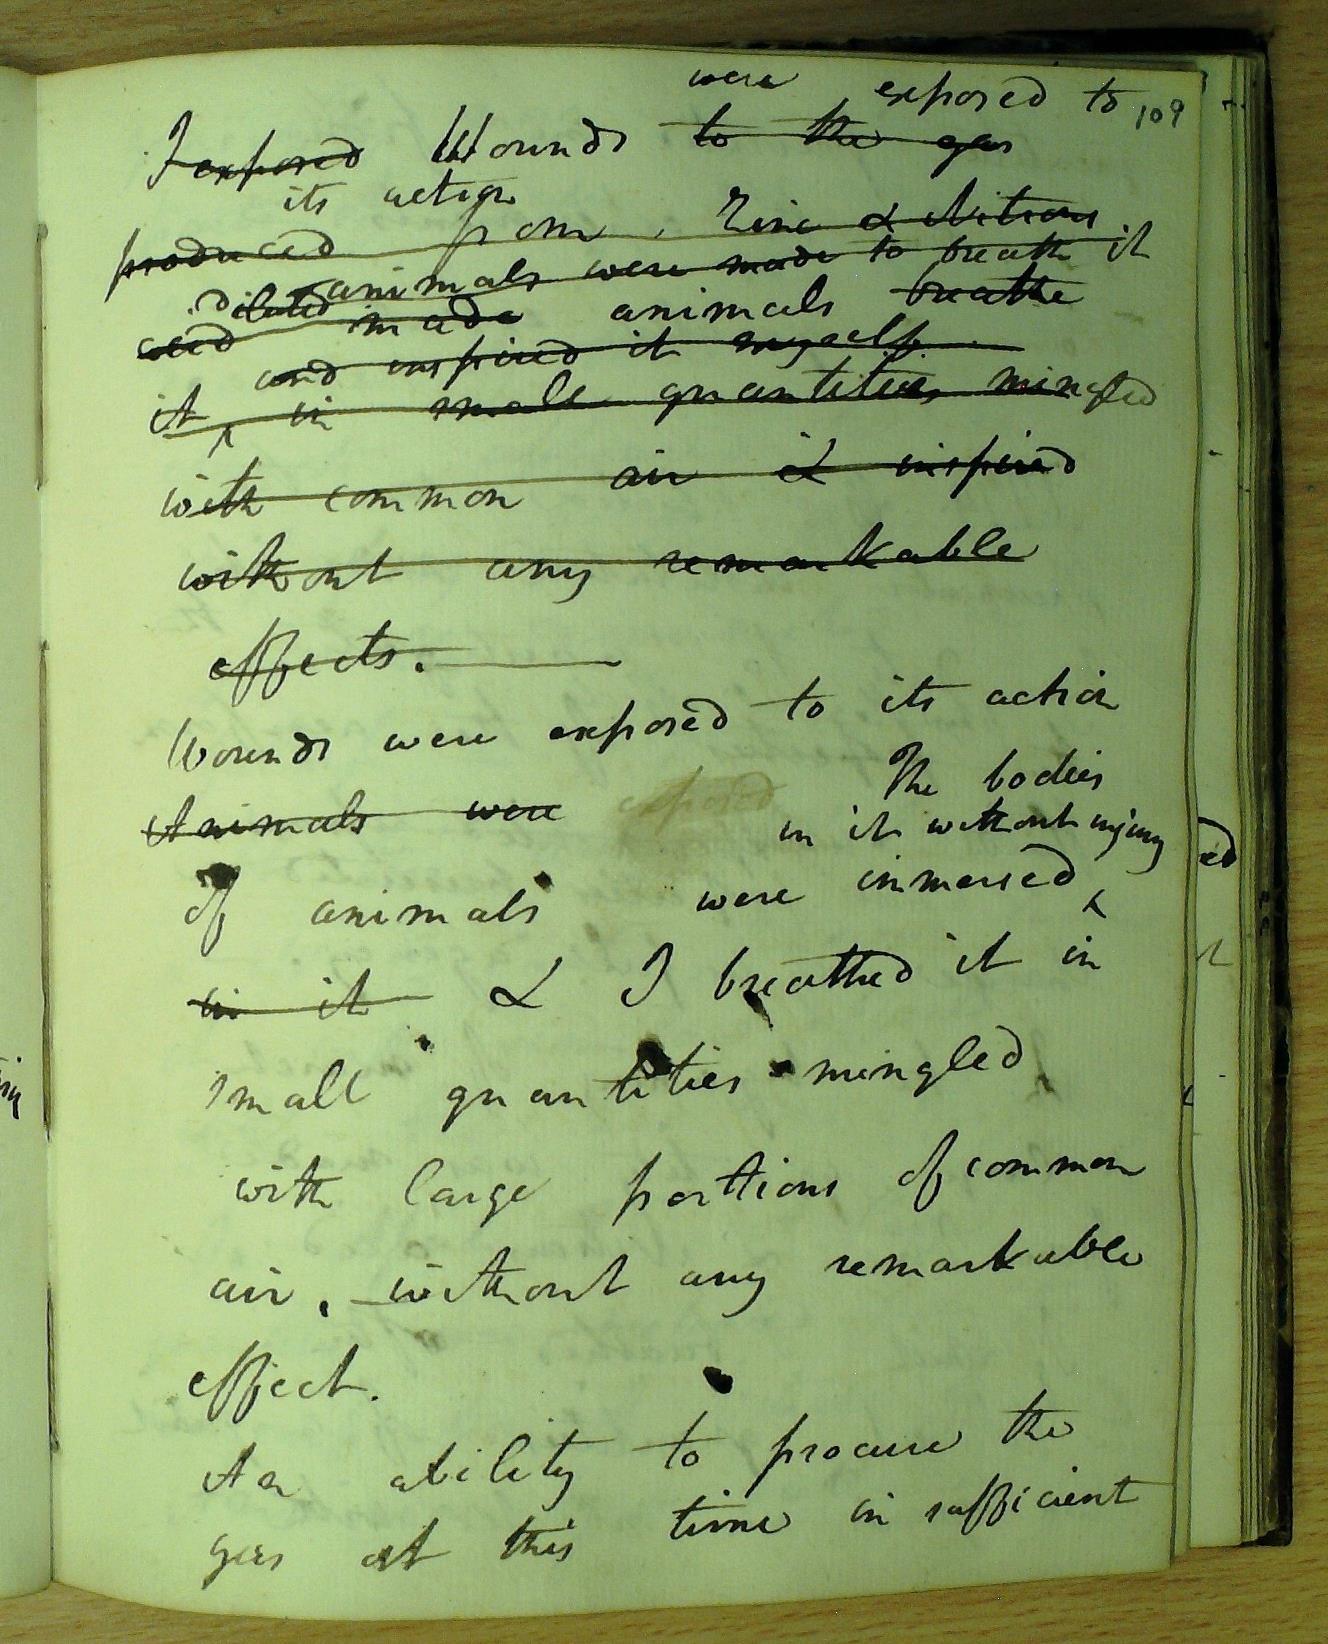 were exposed to 109
I exposed Wounds to the gas
its action
produced from Zinc & Nitrous
animals were made to breath it
diluted
acid made animals breathe
and inspired it myself
it in small quantities mingled
with common air & inspired
without any remarkable
effects.
Wounds were exposed to its action
The bodies
Animals were exposed
in it without injury
Of animals were immersed
in it & I breathed it in
small quantities mingled
with large portions of common
air. without any remarkable
effect.
An ability to procure the
gas at this time in sufficient